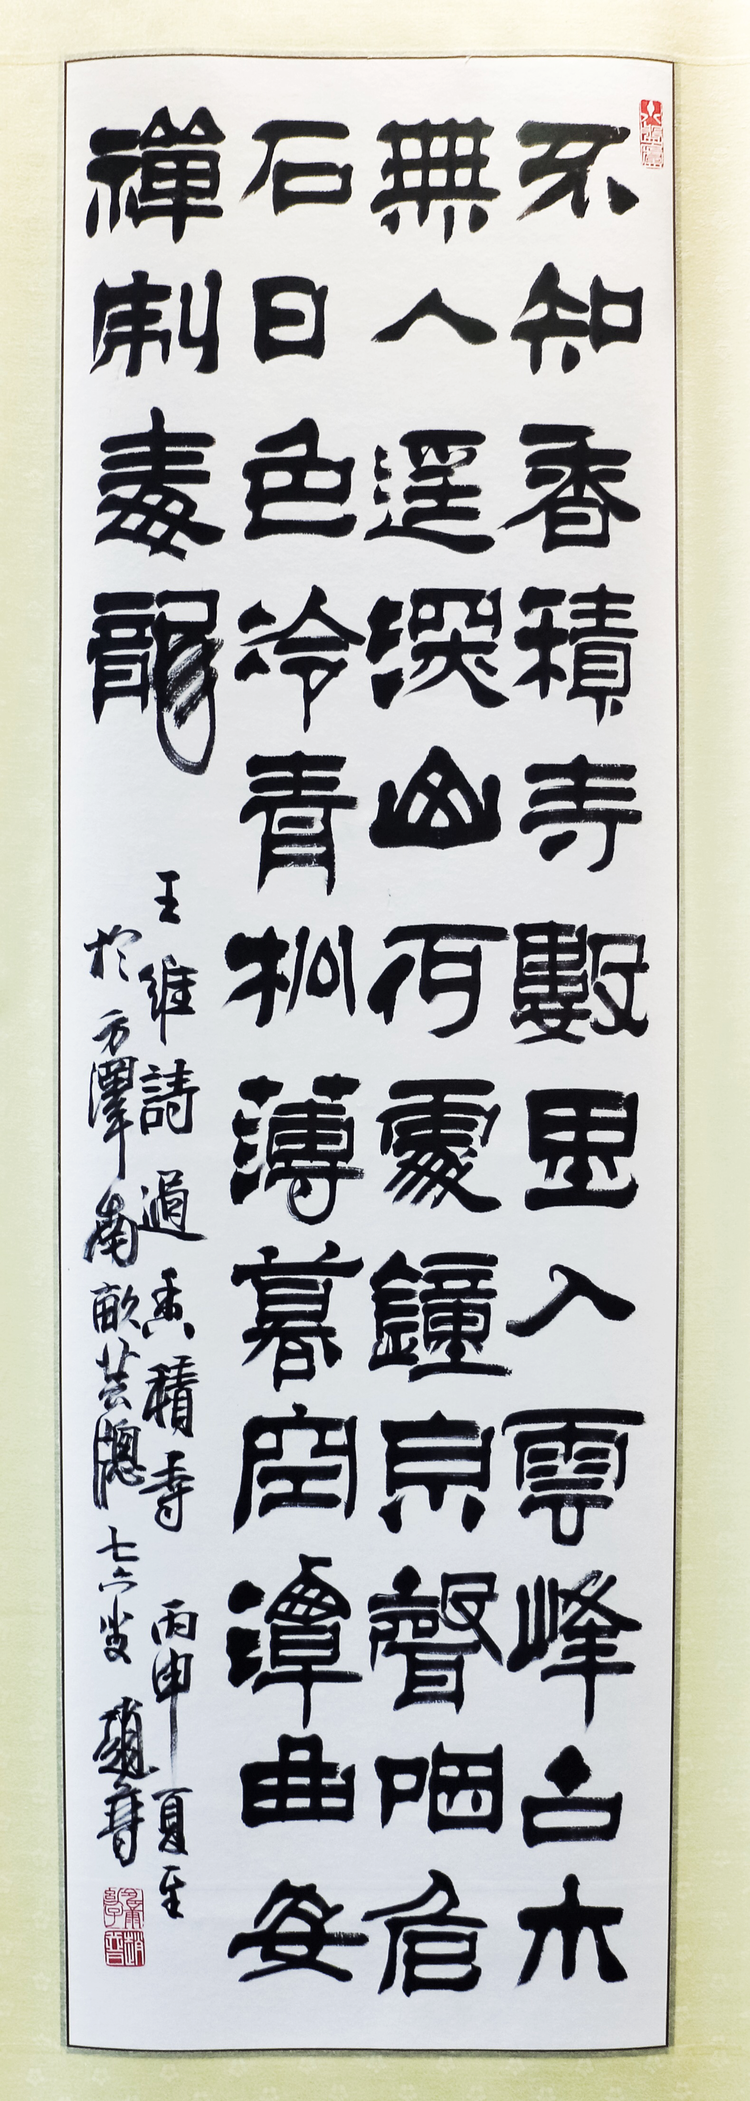 不知香積寺數里入雲峰古木
無人逕深山何處鐘泉聲咽危
石日色冷青松薄暮空潭曲安
禪制毒龍
王維詩過香積寺 丙申夏至
於方澤南畝芸窓七六叟趙